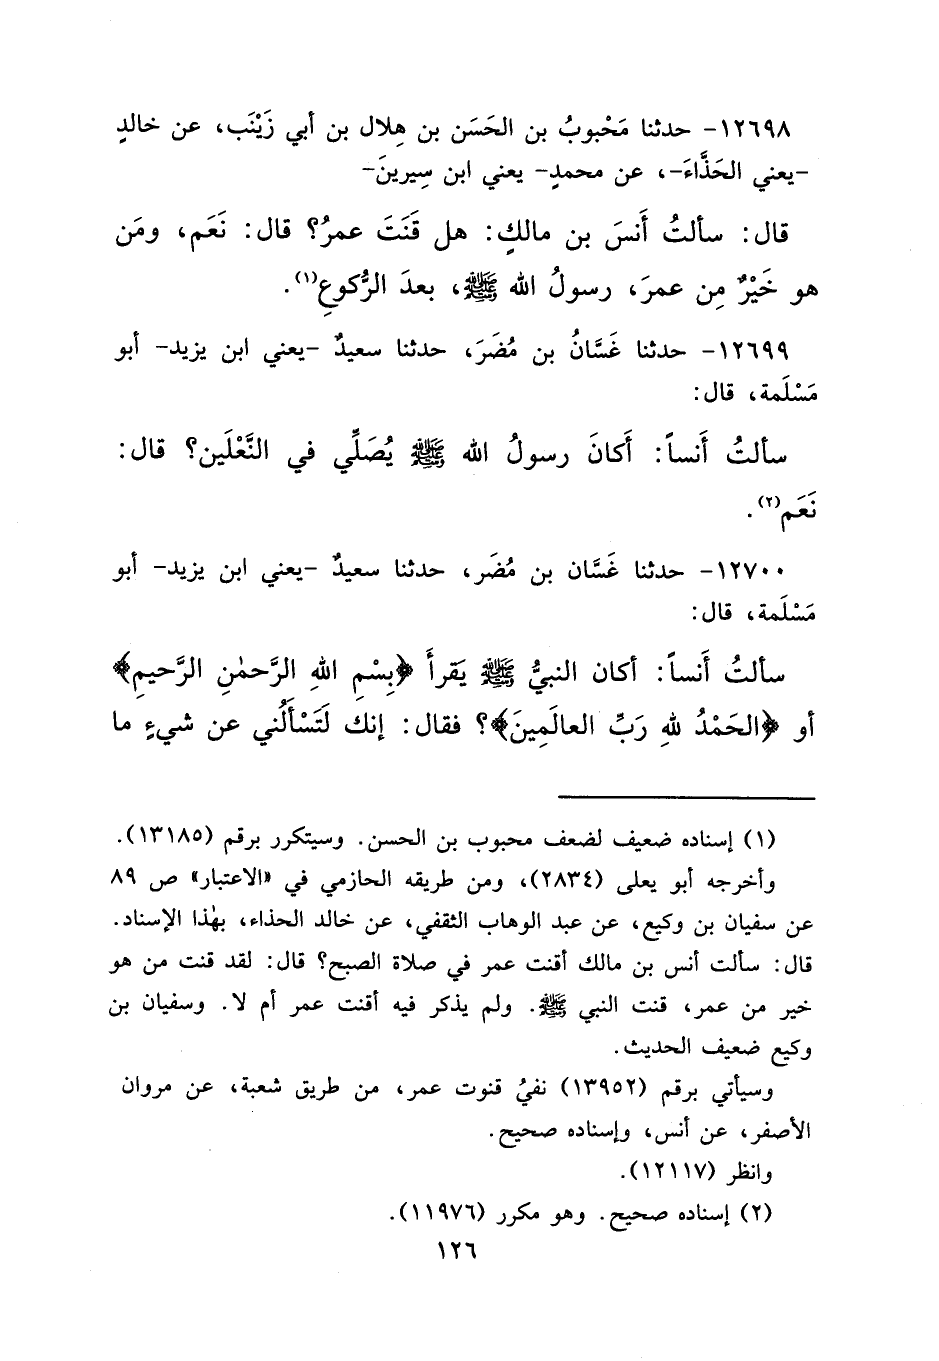 ١٢٦٩٨- حدثنا مَحْبوبُ بن الحَسَن بن هِلال بن أبي زَيْنَب، عن خالدٍ
-يعني الحَذَّاءَ-، عن محمدٍ- يعني ابن سِيرينَ-
قال: سألتُ أَنسَ بن مالكٍ: هل قَنَتَ عمرُ؟ قال: نَعَم، ومَن
هو خَيْرٌ مِن عمرَ، رسولُ الله ﷺ، بعدَ الرُّكوعِ(١).
١٢٦٩٩- حدثنا غَسَّانُ بن مُضَرَ، حدثنا سعيدٌ -يعني ابن يزيد- أبو
مَسْلَمة، قال:
سألتُ أَنساً: أَكانَ رسولُ الله ﷺ يُصَلِّي في النَّعْلَين؟ قال:
نَعَم(٢).
١٢٧٠٠- حدثنا غَسَّان بن مُضَر، حدثنا سعيدٌ -يعني ابن يزيد- أبو
مَسْلَمة، قال:
سألتُ أَنساً: أكان النبيُّ ﷺ يَقرأَ ﴿بِسْمِ اللهِ الرَّحمٰنِ الرَّحيمِ﴾
أو ﴿الحَمْدُ للهِ رَبِّ العالَمِينَ﴾؟ فقال: إنك لَتَسْأَلُني عن شيءٍ ما
(١) إسناده ضعيف لضعف محبوب بن الحسن. وسيتكرر برقم (١٣١٨٥).
وأخرجه أبو يعلى (٢٨٣٤)، ومن طريقه الحازمي في «الاعتبار» ص ٨٩
عن سفيان بن وكيع، عن عبد الوهاب الثقفي، عن خالد الحذاء، بهٰذا الإسناد.
قال: سألت أنس بن مالك أقنت عمر في صلاة الصبح؟ قال: لقد قنت من هو
خير من عمر، قنت النبي ﷺ. ولم يذكر فيه أقنت عمر أم لا. وسفيان بن
وكيع ضعيف الحديث.
وسيأتي برقم (١٣٩٥٢) نفيُ قنوت عمر، من طريق شعبة، عن مروان
الأصفر، عن أنس، وإسناده صحيح.
وانظر (١٢١١٧).
(٢) إسناده صحيح. وهو مكرر (١١٩٧٦).
١٢٦